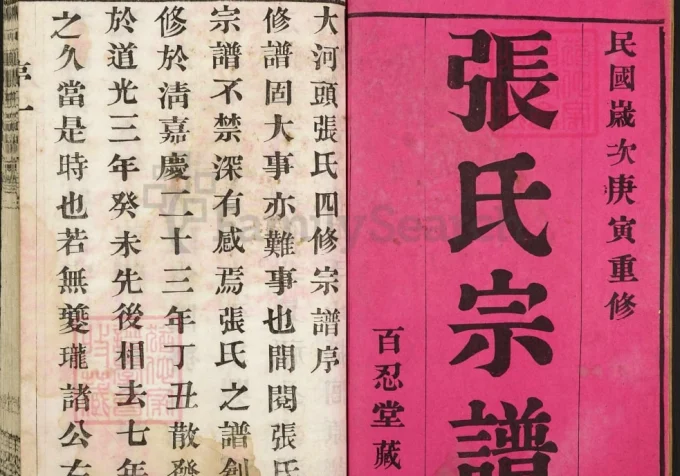 民國歲次庚寅重修
張氏宗譜
百忍堂藏
大河頭張氏四修宗譜序
修譜固大事亦難事也間閱張氏
宗譜不禁深有感焉張氏之譜創
修於清嘉慶二十三年丁丑散發
於道光三年癸未先後相去七年
之久當是時也若無雙瓏諸公左
序一
FamilySearch